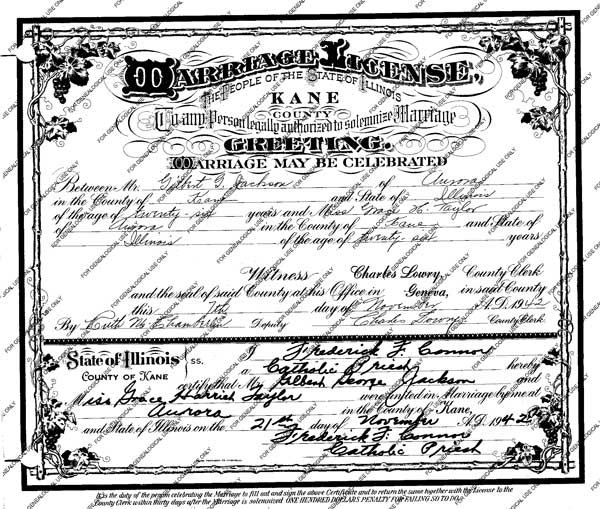 MARRIAGE LICENSE,
THE PEOPLE OF THE STATE OF ILLINOIS
KANE
COUNTY
To any Person legally authorized to solemnize Marriage
GREETING.
MARRIAGE MAY BE CELEBRATED
Between Mr. G. Jackson of Aurora
in the County of Kane and State of Illinois
of the age of twenty-six years and Miss Grace H. Taylor
of Aurora in the County of Kane and State of
Illinois of the age of twenty six years
Witness Charles Lowry, County Clerk
and the seal of said County at his Office in Geneva, in said County
this 7th day of November A.D. 1942
By Ruth M. Deputy Charles Lowry County Clerk
State of Illinois ss. I Frederick F. Connor
COUNTY OF KANE a Catholic Priest hereby
certify that Mr Gilbert George Jackson and
Miss Grace Harriet Taylor were united in Marriage by me at
Aurora in the County of Kane,
and State of Illinois on the 21st day of November A.D. 1942
Frederick F. Connor
Catholic Priest
It is the duty of the person celebrating the Marriage to fill out and sign the above Certificate and to return the same together with the License to the
County Clerk within thirty days after the Marriage is solemnized ONE HUNDRED DOLLARS PENALTY FOR FAILING SO TO DO.
FOR GENEALOGICAL USE ONLY